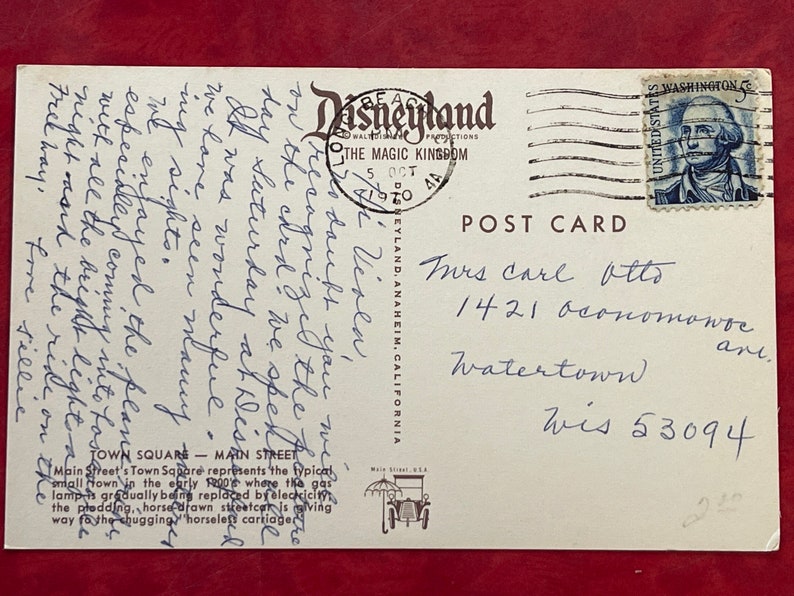 Disneyland
© WALT DISNEY PRODUCTIONS
THE MAGIC KINGDOM
LONG BEACH
5 OCT
1970
UNITED STATES
WASHINGTON 5c
POST CARD
DISNEYLAND, ANAHEIM, CALIFORNIA
Mrs Carl Otto
1421 Oconomowoc
ave.
Watertown
Wis 53094
Hi Viola
No doubt you will
recognize the picture
on the card. We spent all
day Saturday at Disneyland
It was wonderful.
We have seen many interest
ing sights.
We enjoyed the plane trip,
especially coming into Los Angeles
with all the bright lights at
night and the ride on the
freeway.
Love Tillie
TOWN SQUARE — MAIN STREET
Main Street's Town Square represents the typical
small town in the early 1900's where the gas
lamp is gradually being replaced by electricity,
the plodding, horse-drawn streetcar is giving
way to the chugging "horseless carriage."
Main Street, U.S.A.
2.00